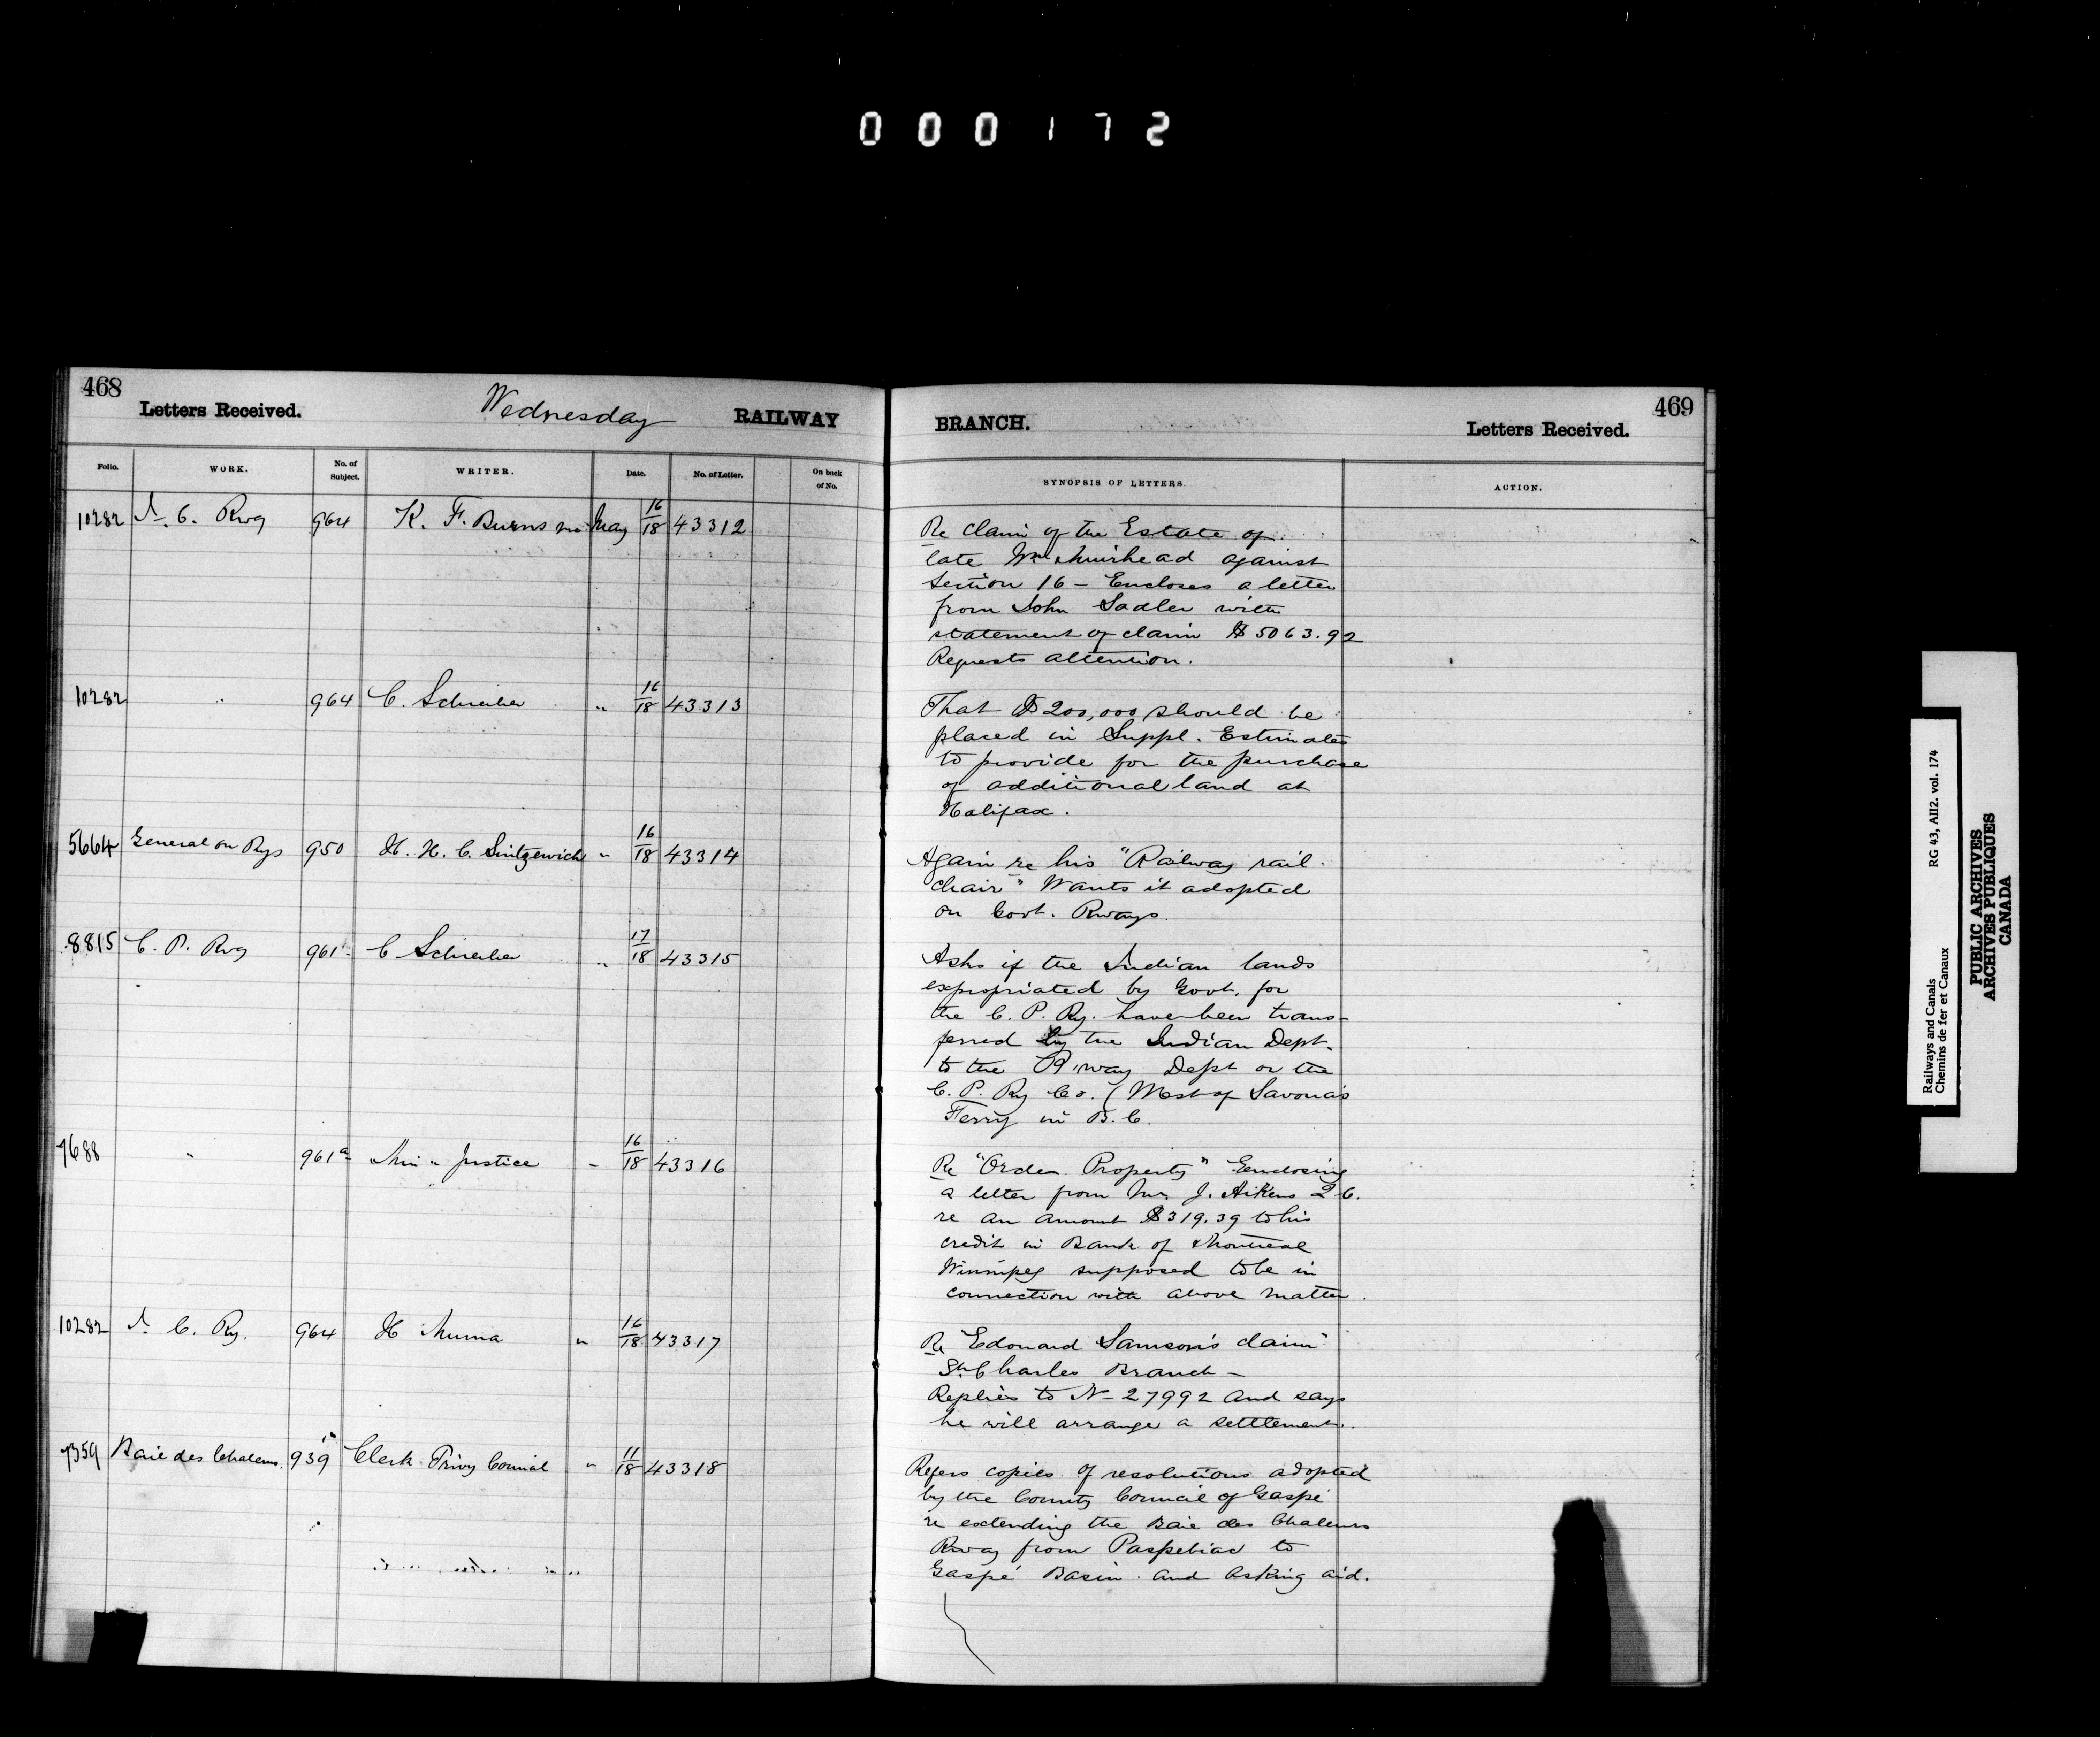 000172
468
Letters Received.
Wednesday
RAILWAY
Folio. WORK. No. of Subject. WRITER. Date. No. of Letter. On back of No.
10282 I. C. Rwy 964 K. F. Burns May 16/18 43312
10282 " 964 C. Schreiber " 16/18 43313
5664 General on Rys 950 H. H. C. " 16/18 43314
8815 C. P. Rwy 961 C Schreiber " 17/18 43315
7688 " 961a Min " Justice " 16/18 43316
10282 I. C. Ry. 964 H " 16/18 43317
7359 Baie des Chaleurs. 939 Clerk Privy Council " 11/18 43318
469
BRANCH.
Letters Received.
SYNOPSIS OF LETTERS. ACTION.
Re Claim of the Estate of
late Wm Muirhead against
Section 16 - Encloses a letter
from John Sadler with
statement of claim $5063.92
Requests attention.
That $200,000 should be
placed in Suppl. Estimates
to provide for the purchase
of additional land at
Halifax.
Again re his "Railway rail
chair" Wants it adopted
on Govt. Rways.
Asks if the Indian lands
expropriated by Govt. for
the C. P. Ry. have been trans-
ferred by the Indian Dept.
to the R'way Dept or the
C. P. Ry Co. (West of Savona's
Ferry in B. C.
Re "Orden Property" Enclosing
a letter from Mr. J. Aikens Q.C.
re an amount $319.39 to his
credit in Bank of Montreal
Winnipeg supposed to be in
connection with above matter.
Re "Edouard Samson's claim"
St. Charles Branch -
Replies to No 27992 and says
he will arrange a settlement.
Refers copies of resolutions adopted
by the County Council of Gaspé
re extending the Baie des Chaleurs
Rway from Paspebiac to
Gaspé Basin and asking aid.
Railways and Canals RG 43, AII2. vol. 174
Chemins de fer et Canaux
PUBLIC ARCHIVES
ARCHIVES PUBLIQUES
CANADA